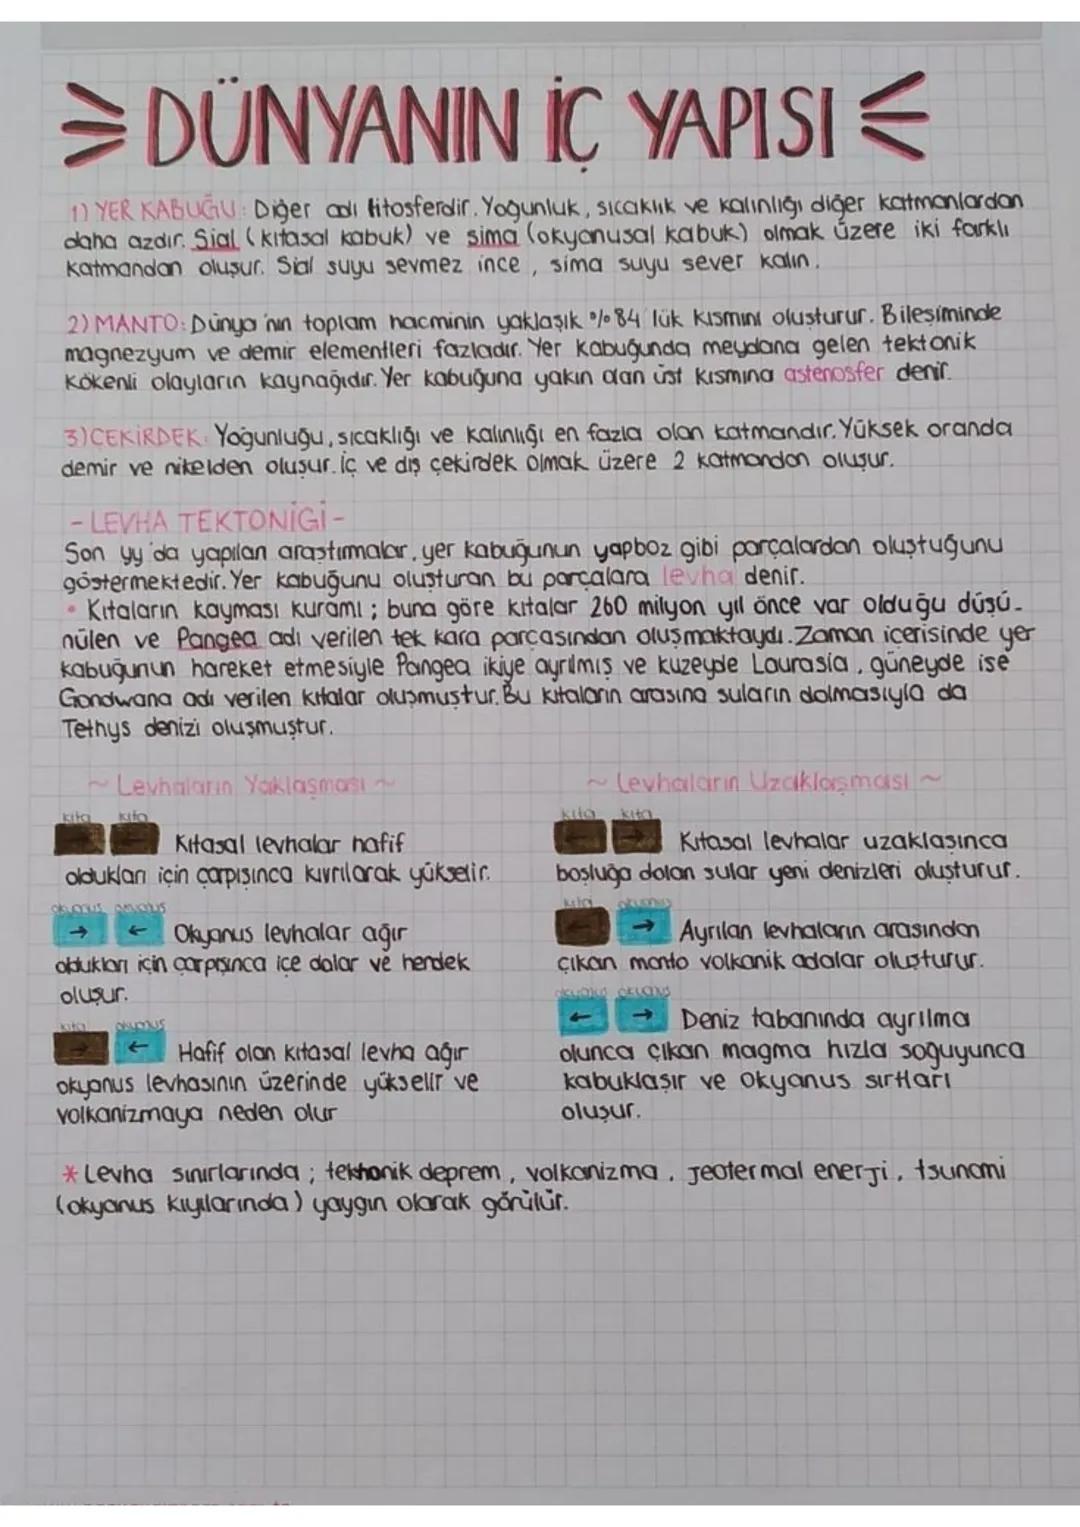 DÜNYANIN İÇ YAPISI
1) YER KABUĞU: Diğer adı litosferdir. Yoğunluk, sıcaklık ve kalınlığı diğer katmanlardan
daha azdır. Sial (kıtasal kabuk) ve sima (okyanusal kabuk) olmak üzere iki farklı
katmandan oluşur. Sial suyu sevmez ince, sima suyu sever kalın.
2) MANTO: Dünya'nın toplam hacminin yaklaşık %84 lük kısmını oluşturur. Bileşiminde
magnezyum ve demir elementleri fazladır. Yer kabuğunda meydana gelen tektonik
kökenli olayların kaynağıdır. Yer kabuğuna yakın olan üst kısmına astenosfer denir.
3) ÇEKİRDEK: Yoğunluğu, sıcaklığı ve kalınlığı en fazla olan katmandır. Yüksek oranda
demir ve nikelden oluşur. İç ve dış çekirdek olmak üzere 2 katmandan oluşur.
- LEVHA TEKTONİĞİ -
Son yy'da yapılan araştırmalar, yer kabuğunun yapboz gibi parçalardan oluştuğunu
göstermektedir. Yer kabuğunu oluşturan bu parçalara levha denir.
• Kıtaların kayması kuramı; buna göre kıtalar 260 milyon yıl önce var olduğu düşü-
nülen ve Pangea adı verilen tek kara parçasından oluşmaktaydı. Zaman içerisinde yer
kabuğunun hareket etmesiyle Pangea ikiye ayrılmış ve kuzeyde Laurasia, güneyde ise
Gondwana adı verilen kıtalar oluşmuştur. Bu kıtaların arasına suların dolmasıyla da
Tethys denizi oluşmuştur.
~ Levhaların Yaklaşması ~
kıta kıta
→ ← Kıtasal levhalar hafif
oldukları için çarpışınca kıvrılarak yükselir.
okyanus okyanus
→ ← Okyanus levhalar ağır
oldukları için çarpışınca içe dalar ve hendek
oluşur.
kıta okyanus
→ ← Hafif olan kıtasal levha ağır
okyanus levhasının üzerinde yükselir ve
volkanizmaya neden olur
~ Levhaların Uzaklaşması ~
kıta kıta
← → Kıtasal levhalar uzaklaşınca
boşluğa dolan sular yeni denizleri oluşturur.
kıta okyanus
← → Ayrılan levhaların arasından
çıkan manto volkanik adalar oluşturur.
okyanus okyanus
← → Deniz tabanında ayrılma
olunca çıkan magma hızla soğuyunca
kabuklaşır ve okyanus sırtları
oluşur.
* Levha sınırlarında; tektonik deprem, volkanizma, jeotermal enerji, tsunami
(okyanus kıyılarında) yaygın olarak görülür.